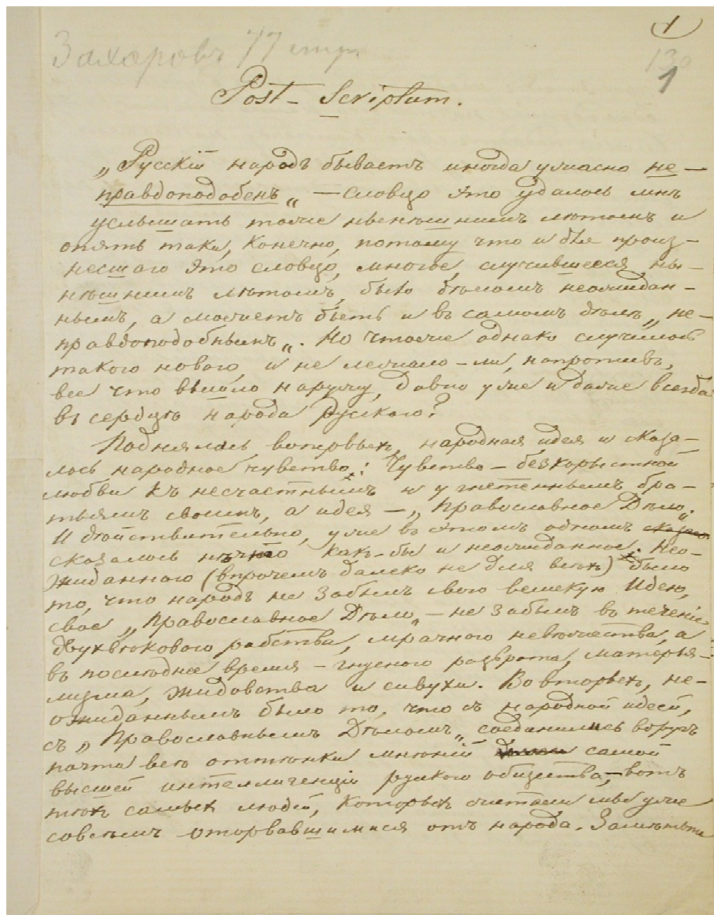 1
Захаровъ 77 стр.
1
Post-Scriptum.
„Русскій народъ бываетъ иногда ужасно не-
правдоподобенъ„ — словцо это удалось мнѣ
услышать тоже нынѣшнимъ лѣтомъ и
опять таки, конечно, потому что и для произ-
несшаго это словцо, многое, случившееся ны-
нѣшнимъ лѣтомъ, было дѣломъ неожидан-
нымъ, а можетъ быть и въ самомъ дѣлѣ „не-
правдоподобнымъ„. Но чтоже однако случилось
такого новаго, и не лежало-ли, напротивъ,
все что вышло наружу, давно уже и даже всегда
въ сердцѣ народа Русскаго?
Поднялась, вопервыхъ, народная идея и сказа-
лось народное чувство: Чувство — безкорыстной
любви къ несчастнымъ и угнетеннымъ бра-
тьямъ своимъ, а идея — „Православное Дѣло„.
И дѣйствительно, уже въ этомъ одномъ
сказалось нѣчто какъ-бы и неожиданное. Нео-
жиданнаго (впрочемъ далеко не для всѣхъ) было
то, что народъ не забылъ свою великую Идею,
свое „Православное Дѣло„ — не забылъ въ теченіи
двухвѣковаго рабства, мрачнаго невѣжества, а
въ послѣднее время — гнуснаго разврата, матерья-
лизма, жидовства и сивухи. Вовторыхъ, не-
ожиданнымъ было то, что съ народной идеей,
съ „Православнымъ Дѣломъ„ соединились вдругъ
почти всѣ оттѣнки мнѣній самой
высшей интеллигенціи русскаго общества, — вотъ
тѣхъ самыхъ людей, которыхъ считали мы уже
совсѣмъ оторвавшимися отъ народа. Замѣтьте